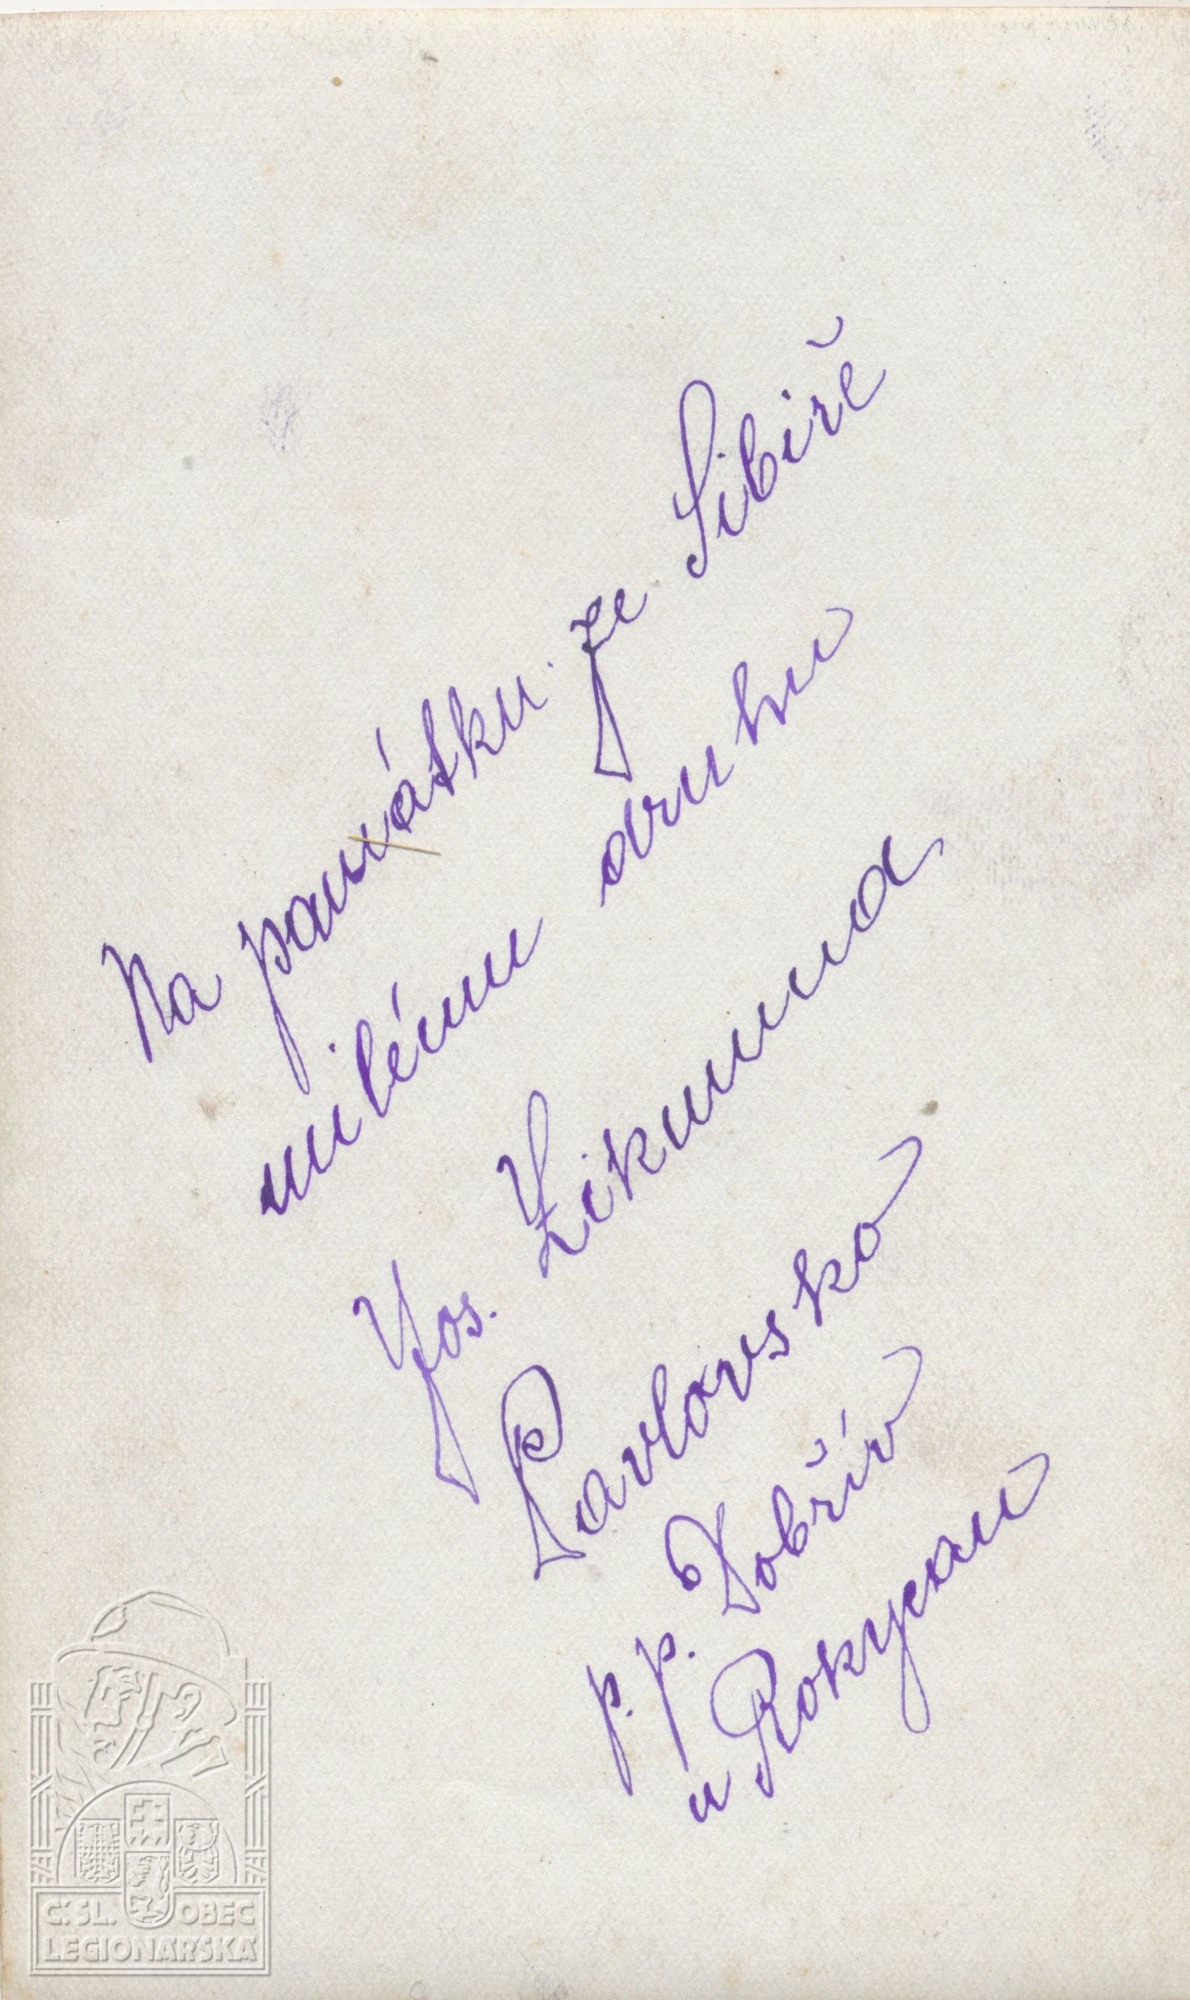 Na památku ze Sibiře
milému druhu
Jos. Zikmunda
Pavlovsko
p. p. Dobřív
u Rokycan
Č. SL. OBEC
LEGIONÁŘSKÁ